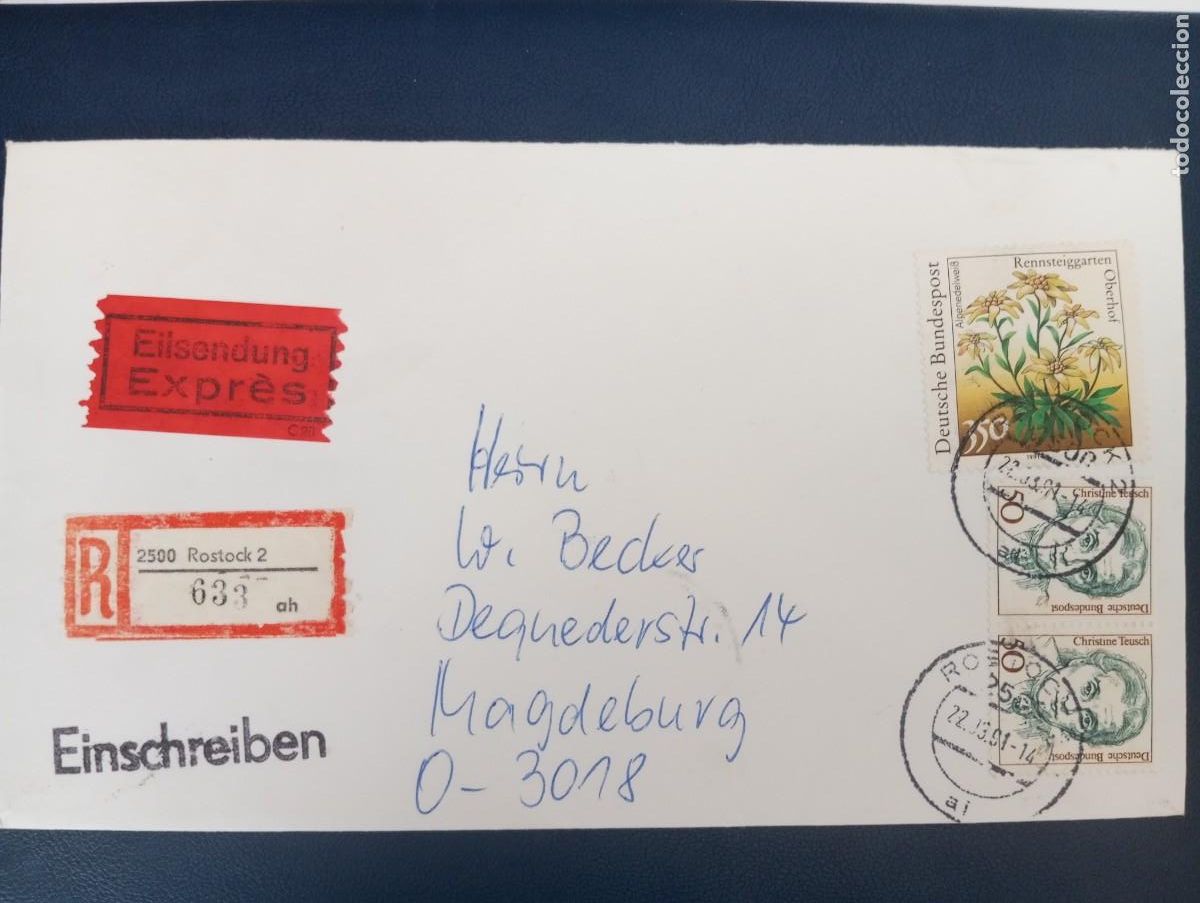 todocoleccion
Eilsendung
Exprès
C 20
R
2500 Rostock 2
633
ah
Einschreiben
Herrn
W. Becker
Dequederstr. 14
Magdeburg
O-3018
Deutsche Bundespost
Alpenedelweiß
Rennsteiggarten
Oberhof
350
22.03.91-14
50
Christine Teusch
Deutsche Bundespost
50
Christine Teusch
Deutsche Bundespost
22.03.91-14
ai